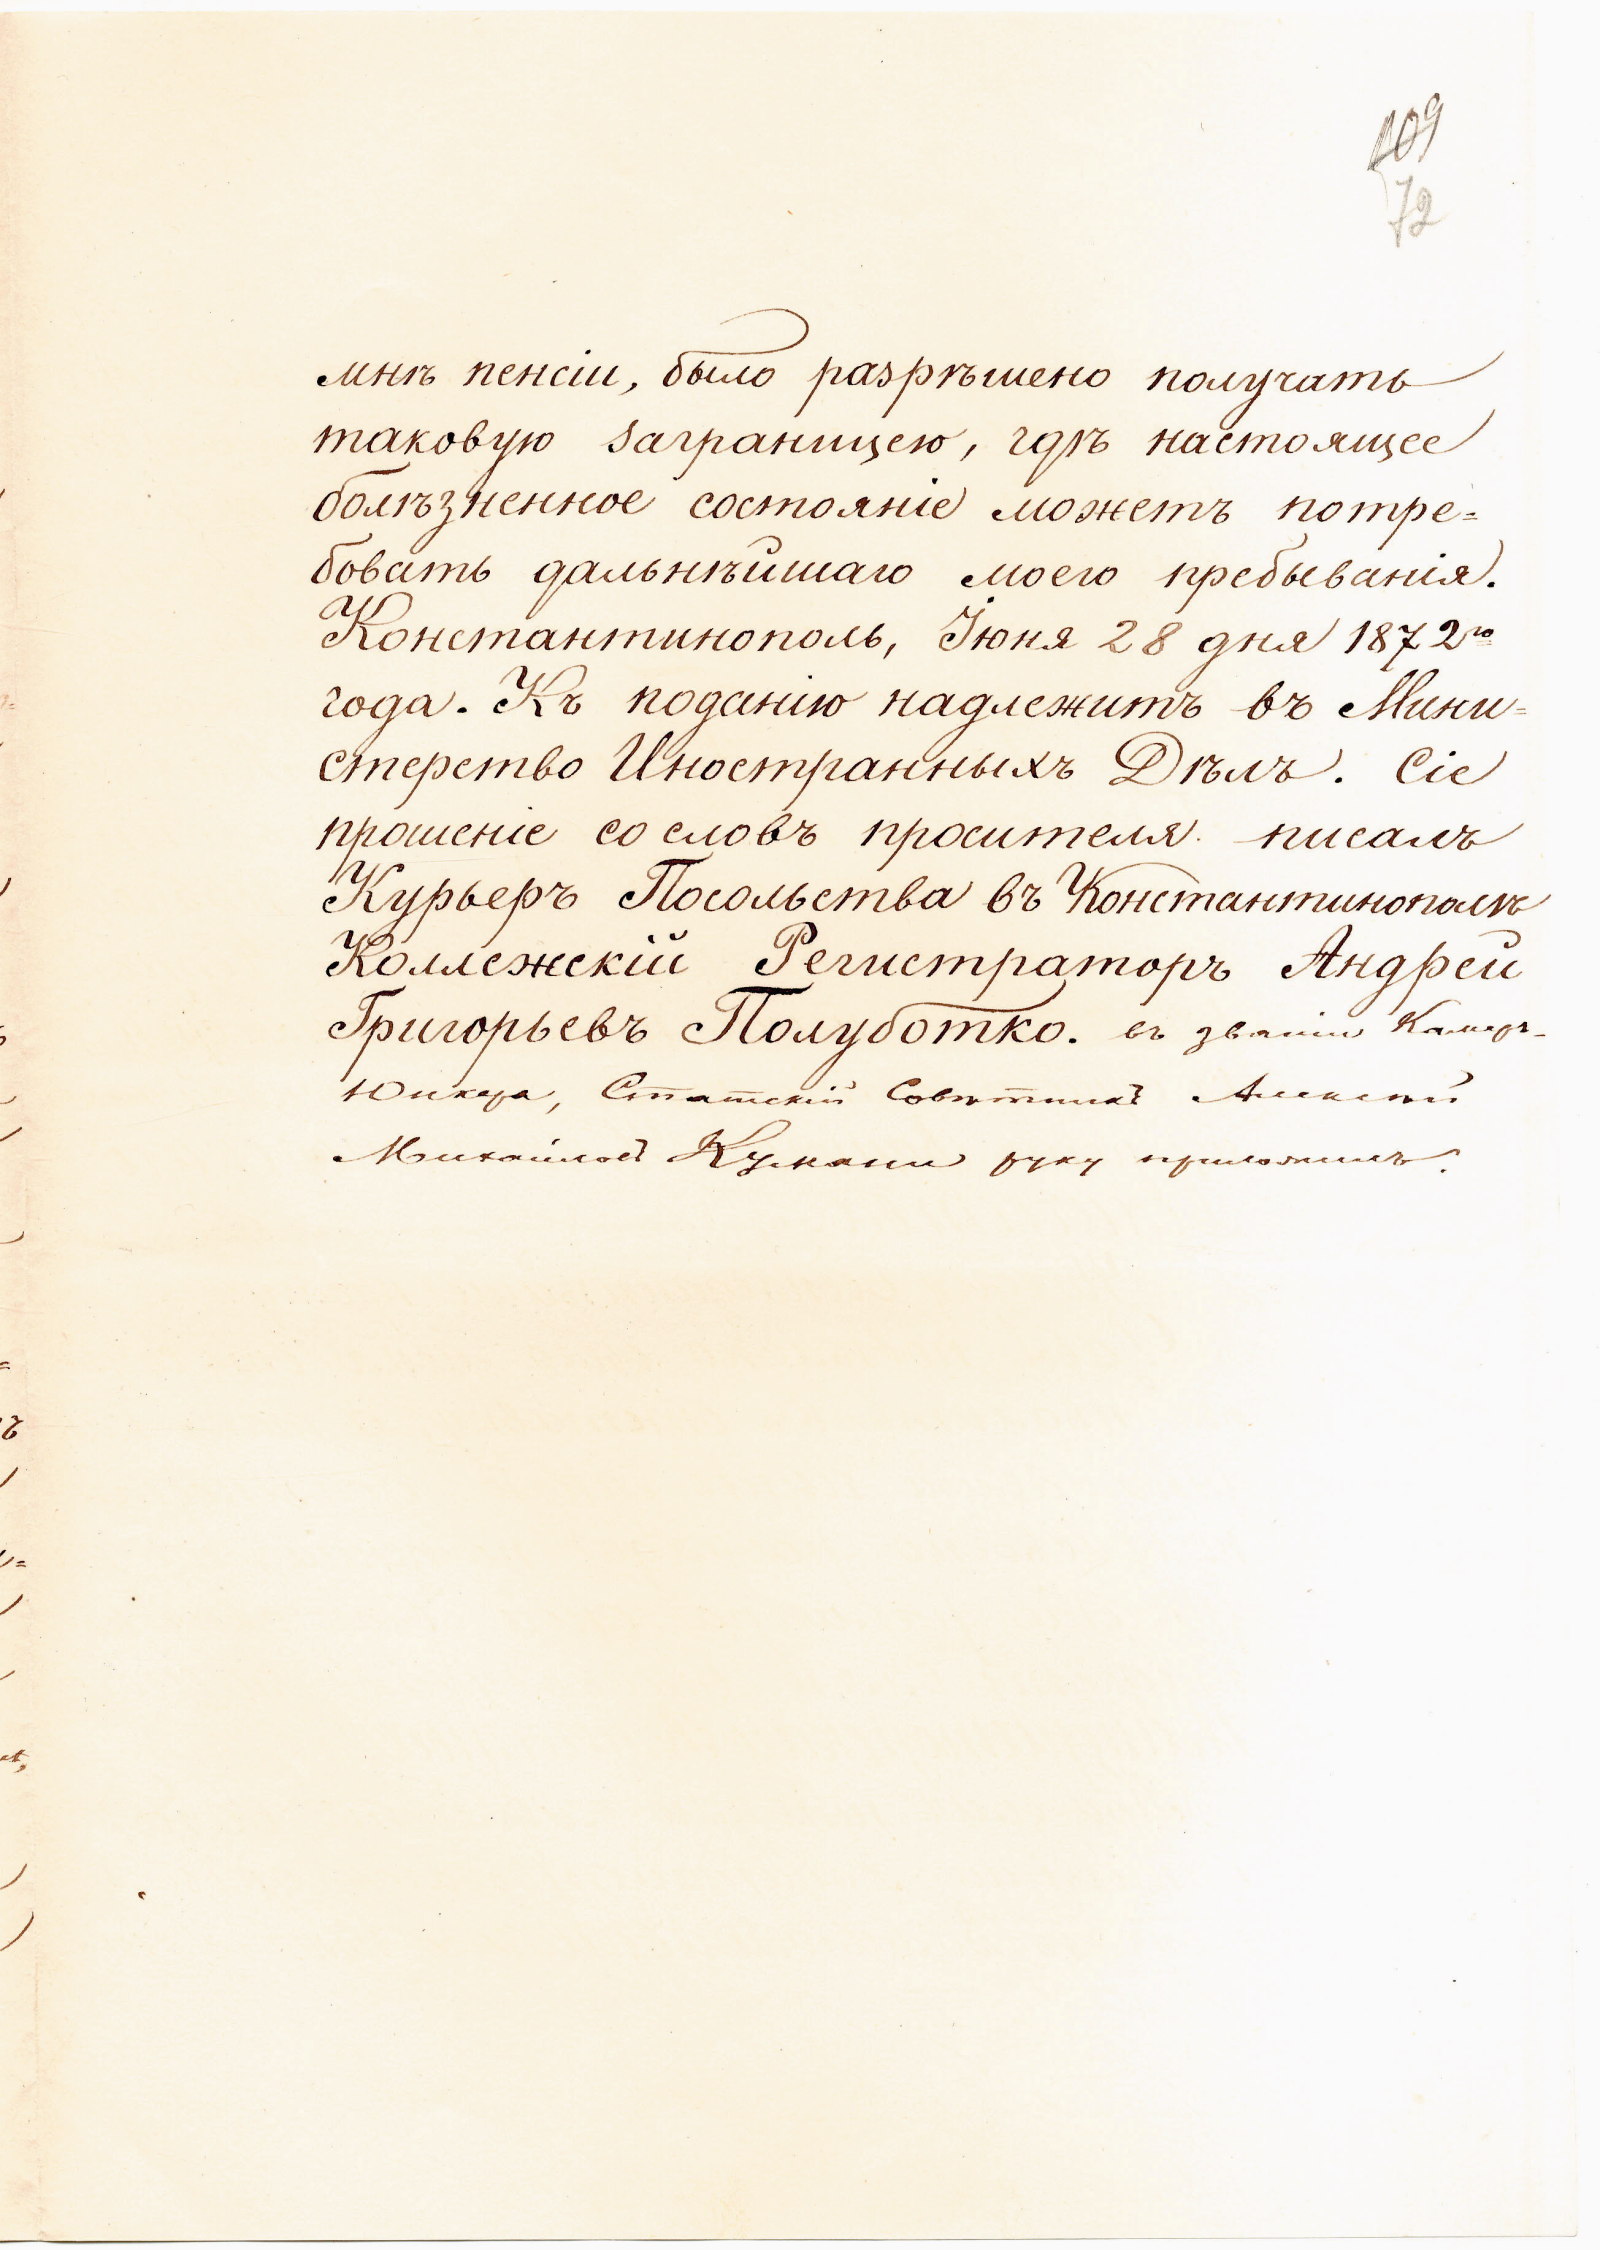 109
72
мнѣ пенсіи, было разрѣшено получать
таковую заграницею, гдѣ настоящее
болѣзненное состояніе можетъ потре=
бовать дальнѣйшаго моего пребыванія.
Константинополь, Іюня 28 дня 1872го
года. Къ поданію надлежитъ въ Мини=
стерство Иностранныхъ Дѣлъ. Сіе
прошеніе со словъ просителя писалъ
Курьеръ Посольства въ Константинополѣ
Коллежскій Регистраторъ Андрей
Григорьевъ Полуботко. въ званіи Камеръ-
Юнкера, Статскій Совѣтникъ Алексѣй
Михайловъ Кумани руку приложилъ.